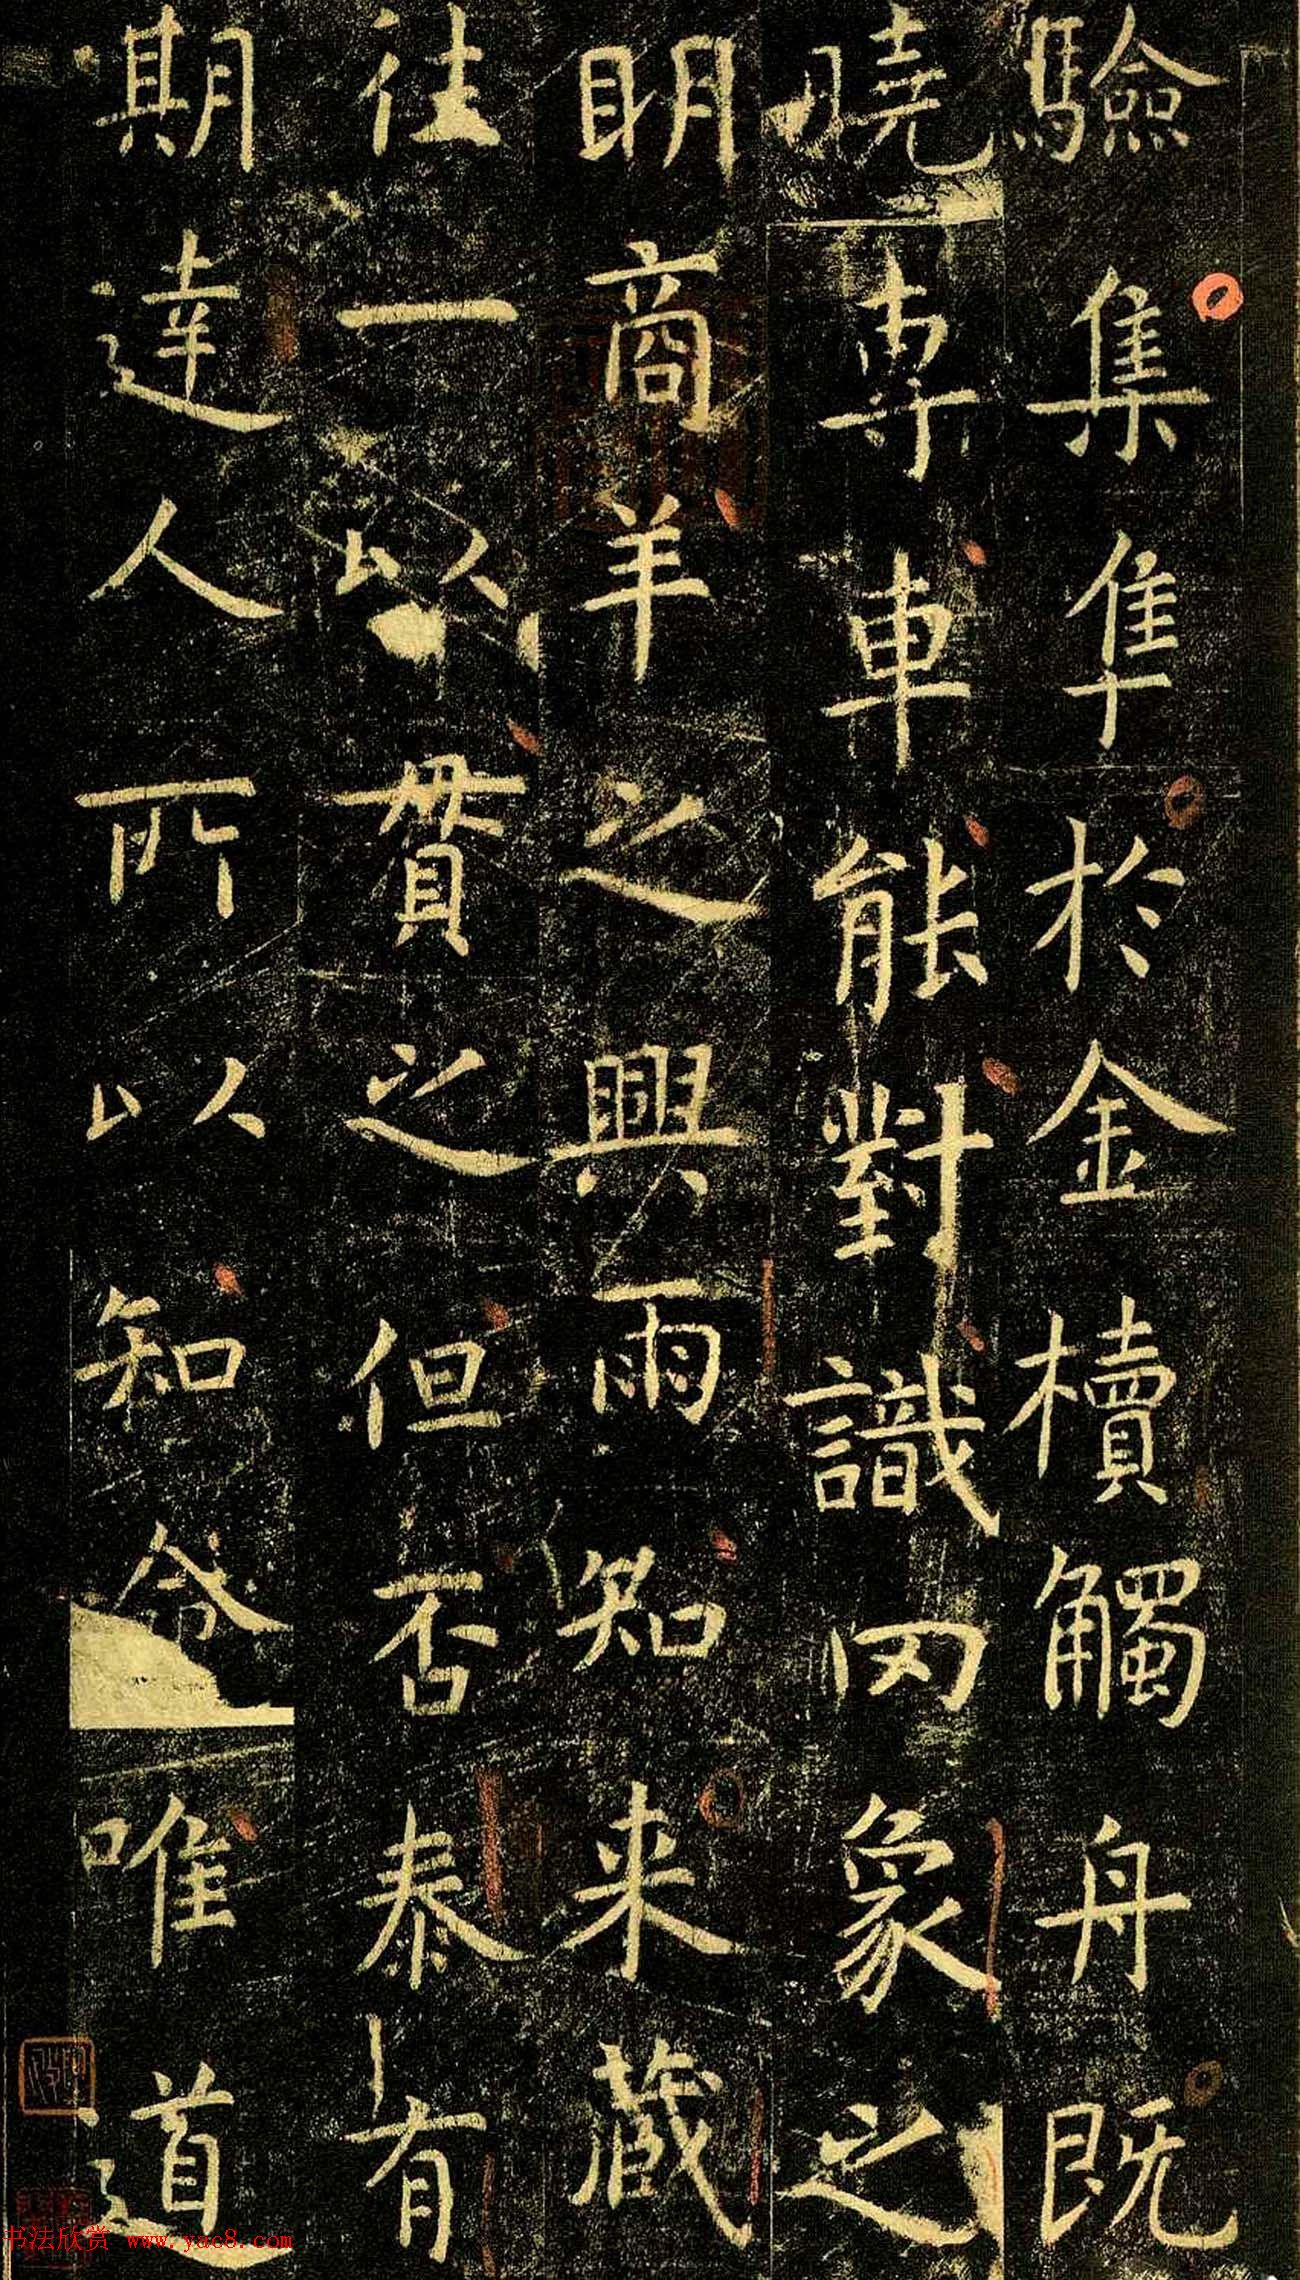 驗集隼於金櫝觸舟既
曉專車能對識罔象之
明商羊之興雨知来藏
往一以貫之但否泰有
期達人所以知命唯道
书法欣赏 www.yac8.com